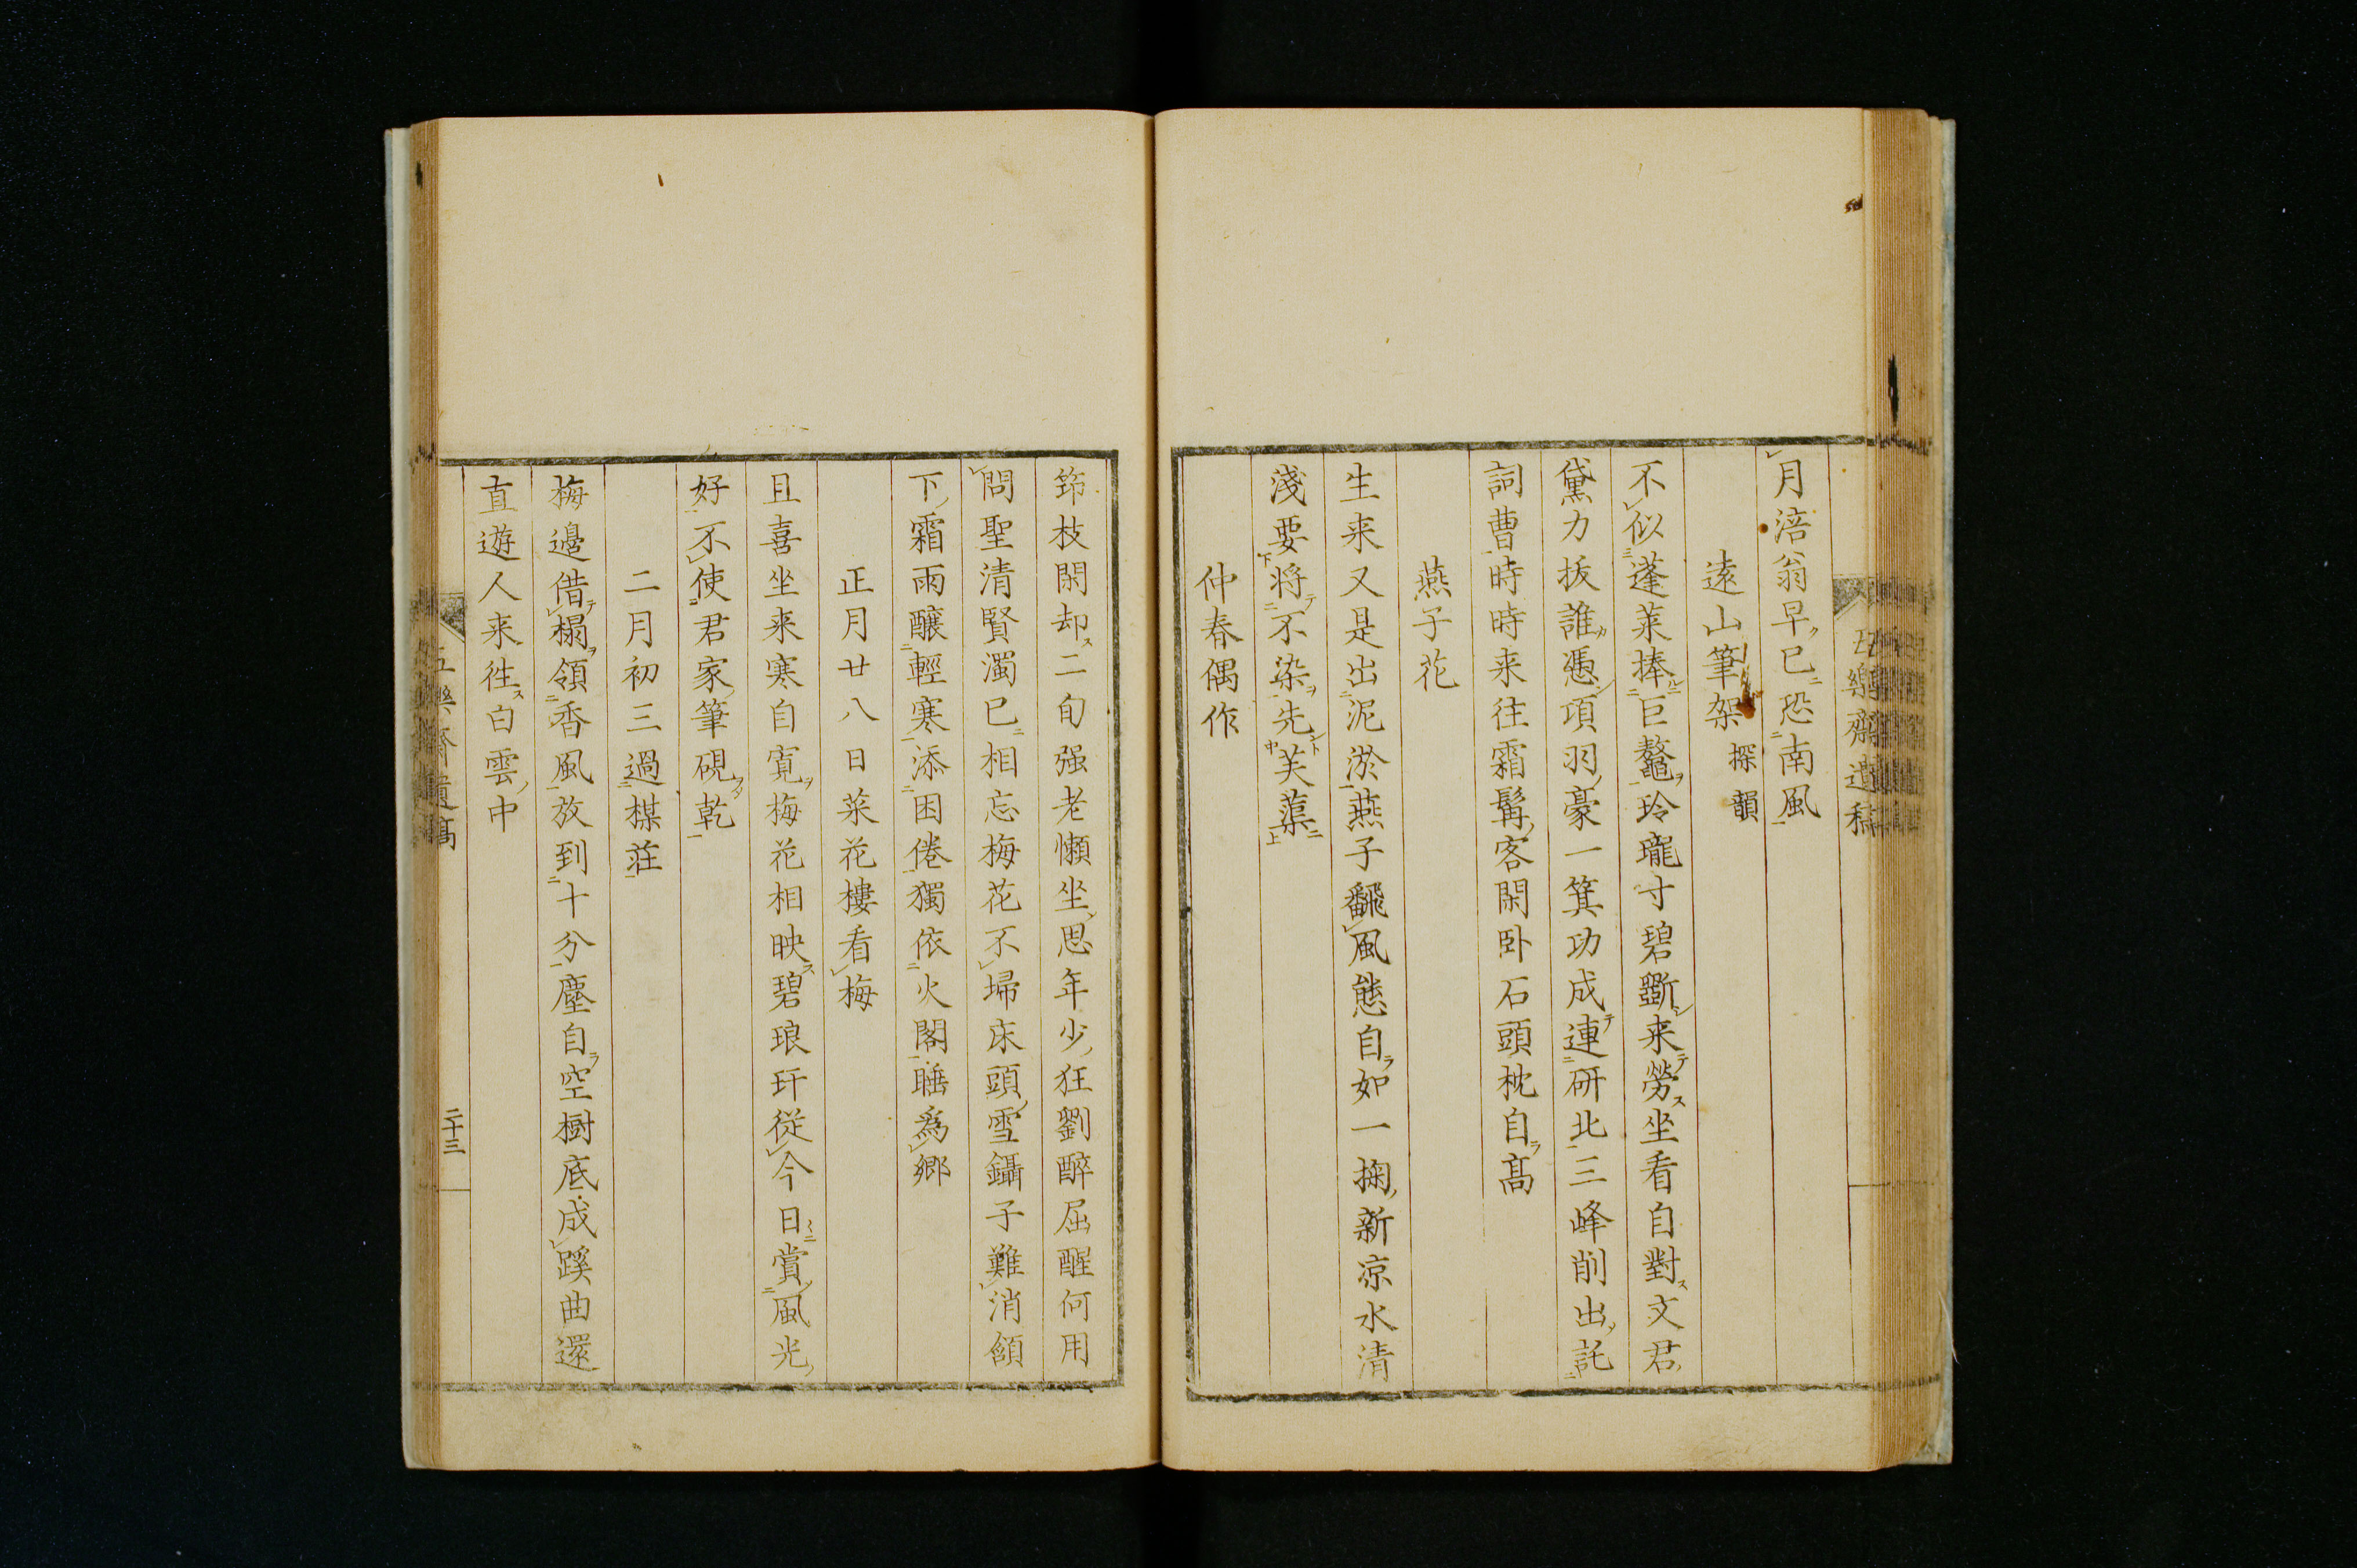 月涪翁早已恐南風
遠山筆架 探韻
不似蓬萊捧巨鼇玲瓏寸碧斲来勞坐看自對文君
黛力抜誰憑項羽豪一簣功成連研北三峰削出託
詞曹時時来往霜髯客閑卧石頭枕自髙
燕子花
生来又是出泥淤燕子飜風態自如一掬新凉水清
淺要將不染先芙蕖
仲春偶作
筇枝閑却二旬强老懶坐思年少狂劉醉屈醒何用
問聖清賢濁已相忘梅花不埽床頭雪鑷子難消頷
下霜雨釀輕寒添困倦獨依火閣睡爲鄉
正月廿八日菜花樓看梅
且喜坐来寒自寛梅花相映碧琅玕従今日賞風光
好不使君家筆硯乾
二月初三過楳荘
梅邊借榻領香風放到十分塵自空樹底成蹊曲還
直遊人来往白雲中
二十三